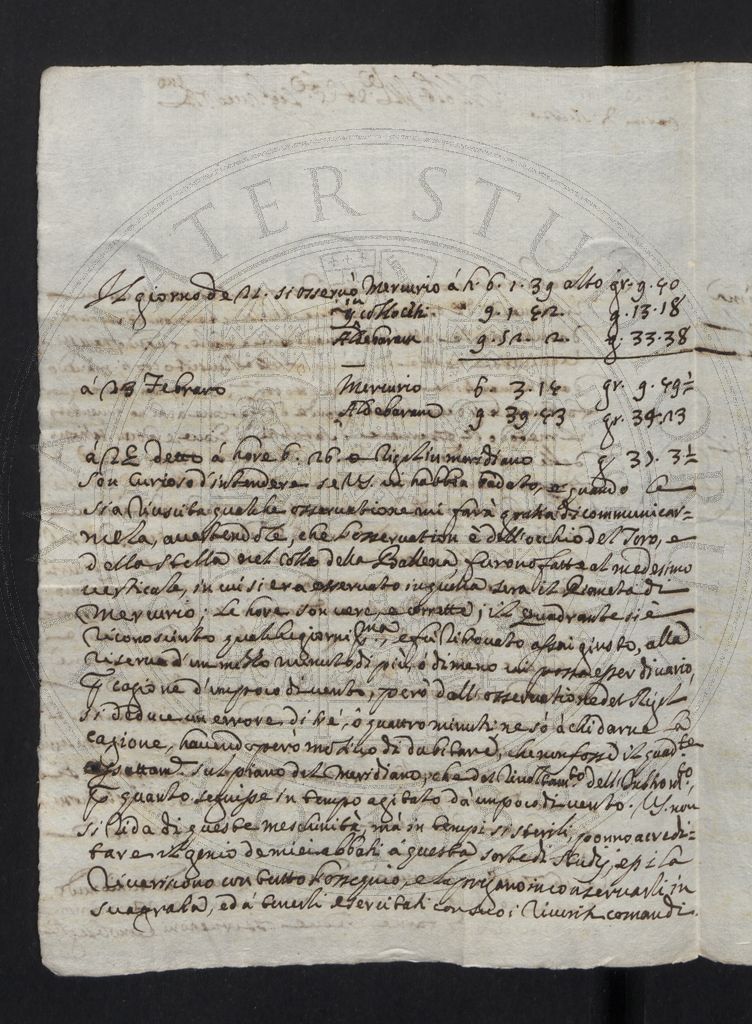 Il giorno de 21. si osservò Mercurio á h 6. 1. 39 alto gr. 9. 40
collo Ceti. 9. 1. 42. g. 13. 18
Aldebaran 9. 52. 2. g. 33. 38
á 23 Febraro Mercurio 6. 3. 14 gr. 9. 49½
Aldebaran 9. 39. 43 gr. 34. 23
á detto á hore 6. 26. 0 Rigel in meridiano g 37. 3½
Son curioso d'intendere se VS. vi habbia badato, e quando le
sia riuscita qualche osservatione mi farà gratia di communicar=
mela, avertendole, che l'osservation è dell'occhio del Toro, e
della stella nel collo della Ballena furono fatte al medesimo
verticale, in cui si era osservato in quella sera il Pianeta di
Mercurio; le hore son vere, e corrette; il quadrante si è
riconosciuto qualche giorni p.ma, e fù ritrovato assai giusto, alla
riserva d'un mezzo minuto di più, ó di meno vi possa esser di vario,
p cagione d'un poco di vento, però dall'osservatione del Rigel
si deduce un errore di trè, ò quattro minuti; ne sò à chi darne la
cagione, havendo però motivo di dubitare, che non fosse il quad.te
assettato sul piano del Meridiano, che del dell'Instrom.to,
p quanto seguisse in tempo agitato dà un poco di vento. VS. non
si rida di queste meschinità, mà in tempi sì sterili, ponno accredi=
tare il genio de miei abbati á questa sorte di studij, e p la
riveriscono con tutto l'ossequio, e la pregano in conservarli in
sua gratia, ed á tenerli esercitati con suoi riveriti comandi.